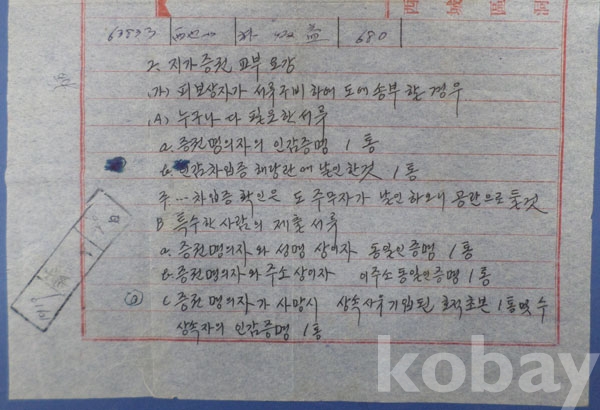 西 城 區 洞
63953 680
2. 지가증권 교부 요강
가) 피보상자가 서류구비하여 도에 송부할 경우
(A) 누구나 다 필요한 서류
a. 증권명의자의 인감증명 1통
b. 인감차입증 해당란에 날인한것 1통
주… 차입증 확인은 도 주무자가 날인하오니 공란으로 둘것
B 특수한 사람의 제출서류
a. 증권명의자와 성명 상이자 동일인증명 1통
b. 증권명의자와 주소상이자 이주소동일인증명 1통
C 증권명의자가 사망시 상속사유기입된 호적초본 1통 및 수
상속자의 인감증명 1통
kobay